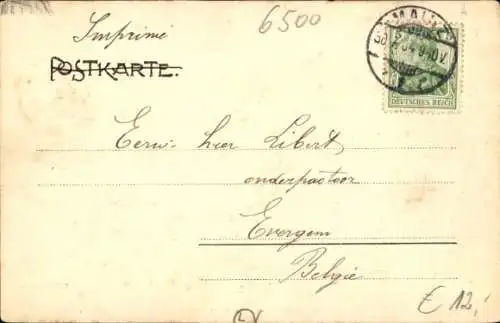 6500
Imprimé
POSTKARTE.
DEUTSCHES REICH
Eerw. heer Libert
onderpastoor
Evergem
België
€ 12,-